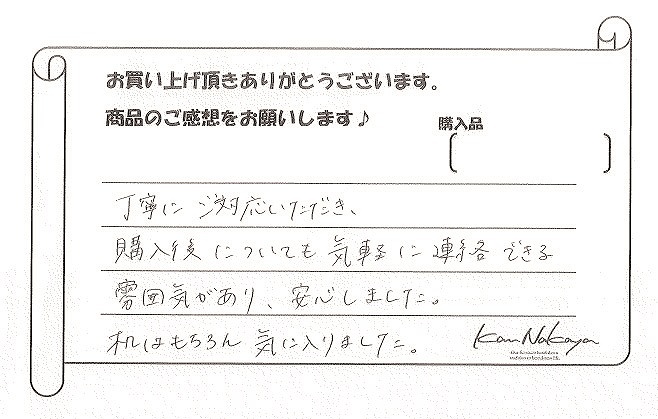 お買い上げ頂きありがとうございます。
商品のご感想をお願いします♪
購入品
丁寧にご対応いただき、
購入後についても気軽に連絡できる
雰囲気があり、安心しました。
机はもちろん気に入りました。
Kan Nakaya